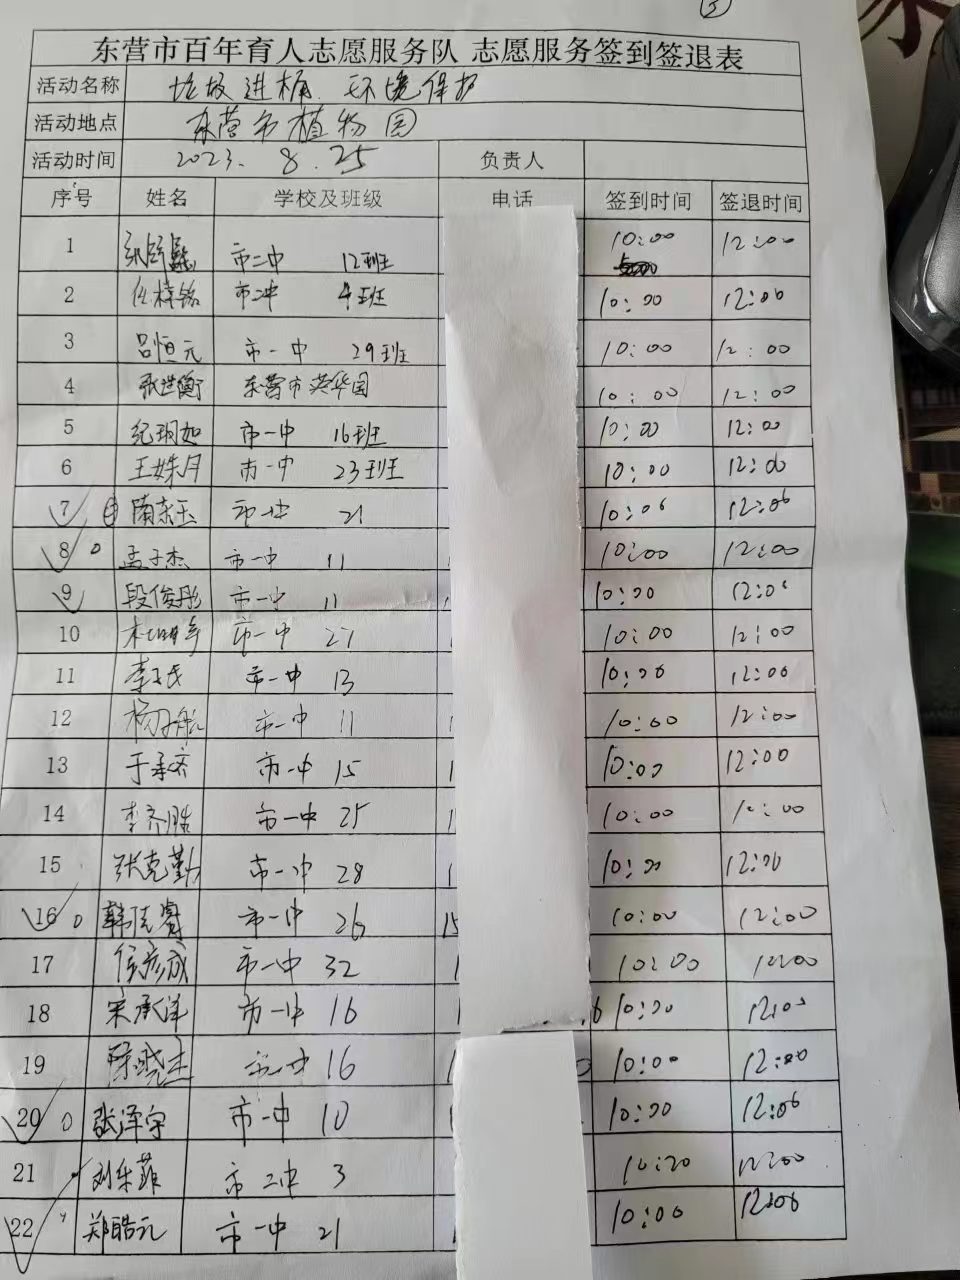 3
东营市百年育人志愿服务队 志愿服务签到签退表
活动名称 垃圾进桶、环境保护
活动地点 东营市植物园
活动时间 2023.8.25 负责人
序号 姓名 学校及班级 电话 签到时间 签退时间
1 市二中 12班 10:00 12:00
2 任梓铭 市二中 4班 10:00 12:00
3 吕恒元 市一中 29班 10:00 12:00
4 张世衡 东营市英华园 10:00 12:00
5 纪玥如 市一中 16班 10:00 12:00
6 王姝月 市一中 23班 10:00 12:00
7 隋东玉 市一中 21 10:00 12:00
8 孟子杰 市一中 11 10:00 12:00
9 段俊彤 市一中 11 10:00 12:00
10 市一中 27 10:00 12:00
11 市一中 13 10:00 12:00
12 杨子航 市一中 11 10:00 12:00
13 于承济 市一中 15 10:00 12:00
14 李齐胜 市一中 25 10:00 12:00
15 张克勤 市一中 28 10:00 12:00
16 市一中 26 15 10:00 12:00
17 侯彦成 市一中 32 10:00 12:00
18 宋承泽 市一中 16 6 10:00 12:00
19 陈晓杰 市一中 16 10:00 12:00
20 张泽宇 市一中 10 10:00 12:00
21 刘乐菲 市二中 3 10:20 12:00
22 郑皓元 市一中 21 10:00 12:00